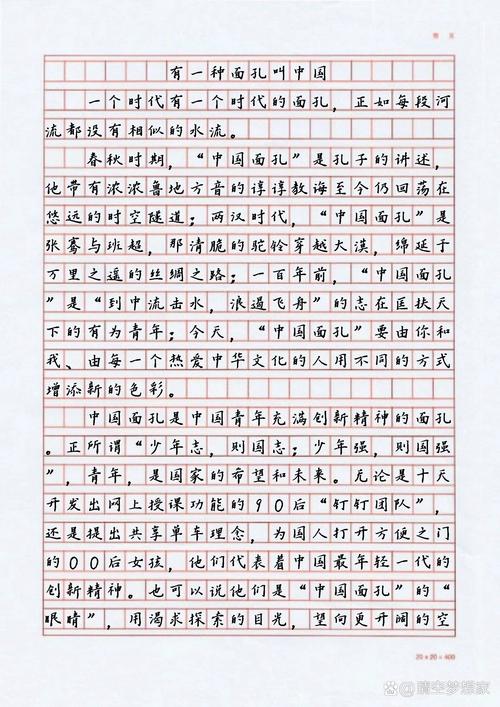 有一种面孔叫中国
一个时代有一个时代的面孔，正如每段河
流都没有相似的水流。
春秋时期，“中国面孔”是孔子的讲述，
他带有浓浓鲁地方音的谆谆教诲至今仍回荡在
悠远的时空隧道；两汉时代，“中国面孔”是
张骞与班超，那清脆的驼铃穿越大漠，绵延于
万里之遥的丝绸之路；一百年前，“中国面孔
”是“到中流击水，浪遏飞舟”的志在匡扶天
下的有为青年；今天，“中国面孔”要由你和
我、由每一个热爱中华文化的人用不同的方式
增添新的色彩。
中国面孔是中国青年充满创新精神的面孔
。正所谓“少年志，则国志；少年强，则国强
”，青年，是国家的希望和未来。无论是十天
开发出网上授课功能的90后“钉钉团队”，
还是提出共享单车理念，为国人打开方便之门
的00后女孩，他们代表着中国最年轻一代的
创新精神。也可以说他们是“中国面孔”的“
眼睛”，用渴求探索的目光，望向更开阔的空
20×20=400
@晴空梦想家